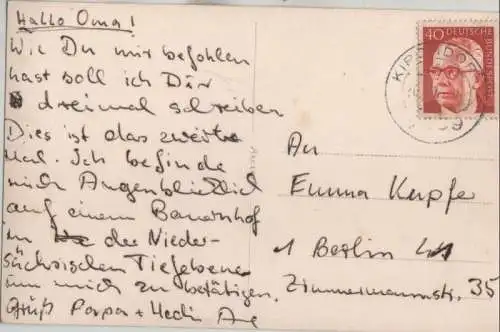 Hallo Oma!
Wie Du mir befohlen
hast soll ich Dir
dreimal schreiben
Dies ist das zweite
Mal. Ich befinde
mich Augenblicklich
auf einem Bauernhof
in der Nieder-
sächsischen Tiefebene
um mich zu betätigen.
Gruß Papa +
40 DEUTSCHE
BUNDESPOST
KIRCHDORF
An
Emma Kupfer
1 Berlin 41
Zimmermannstr. 35